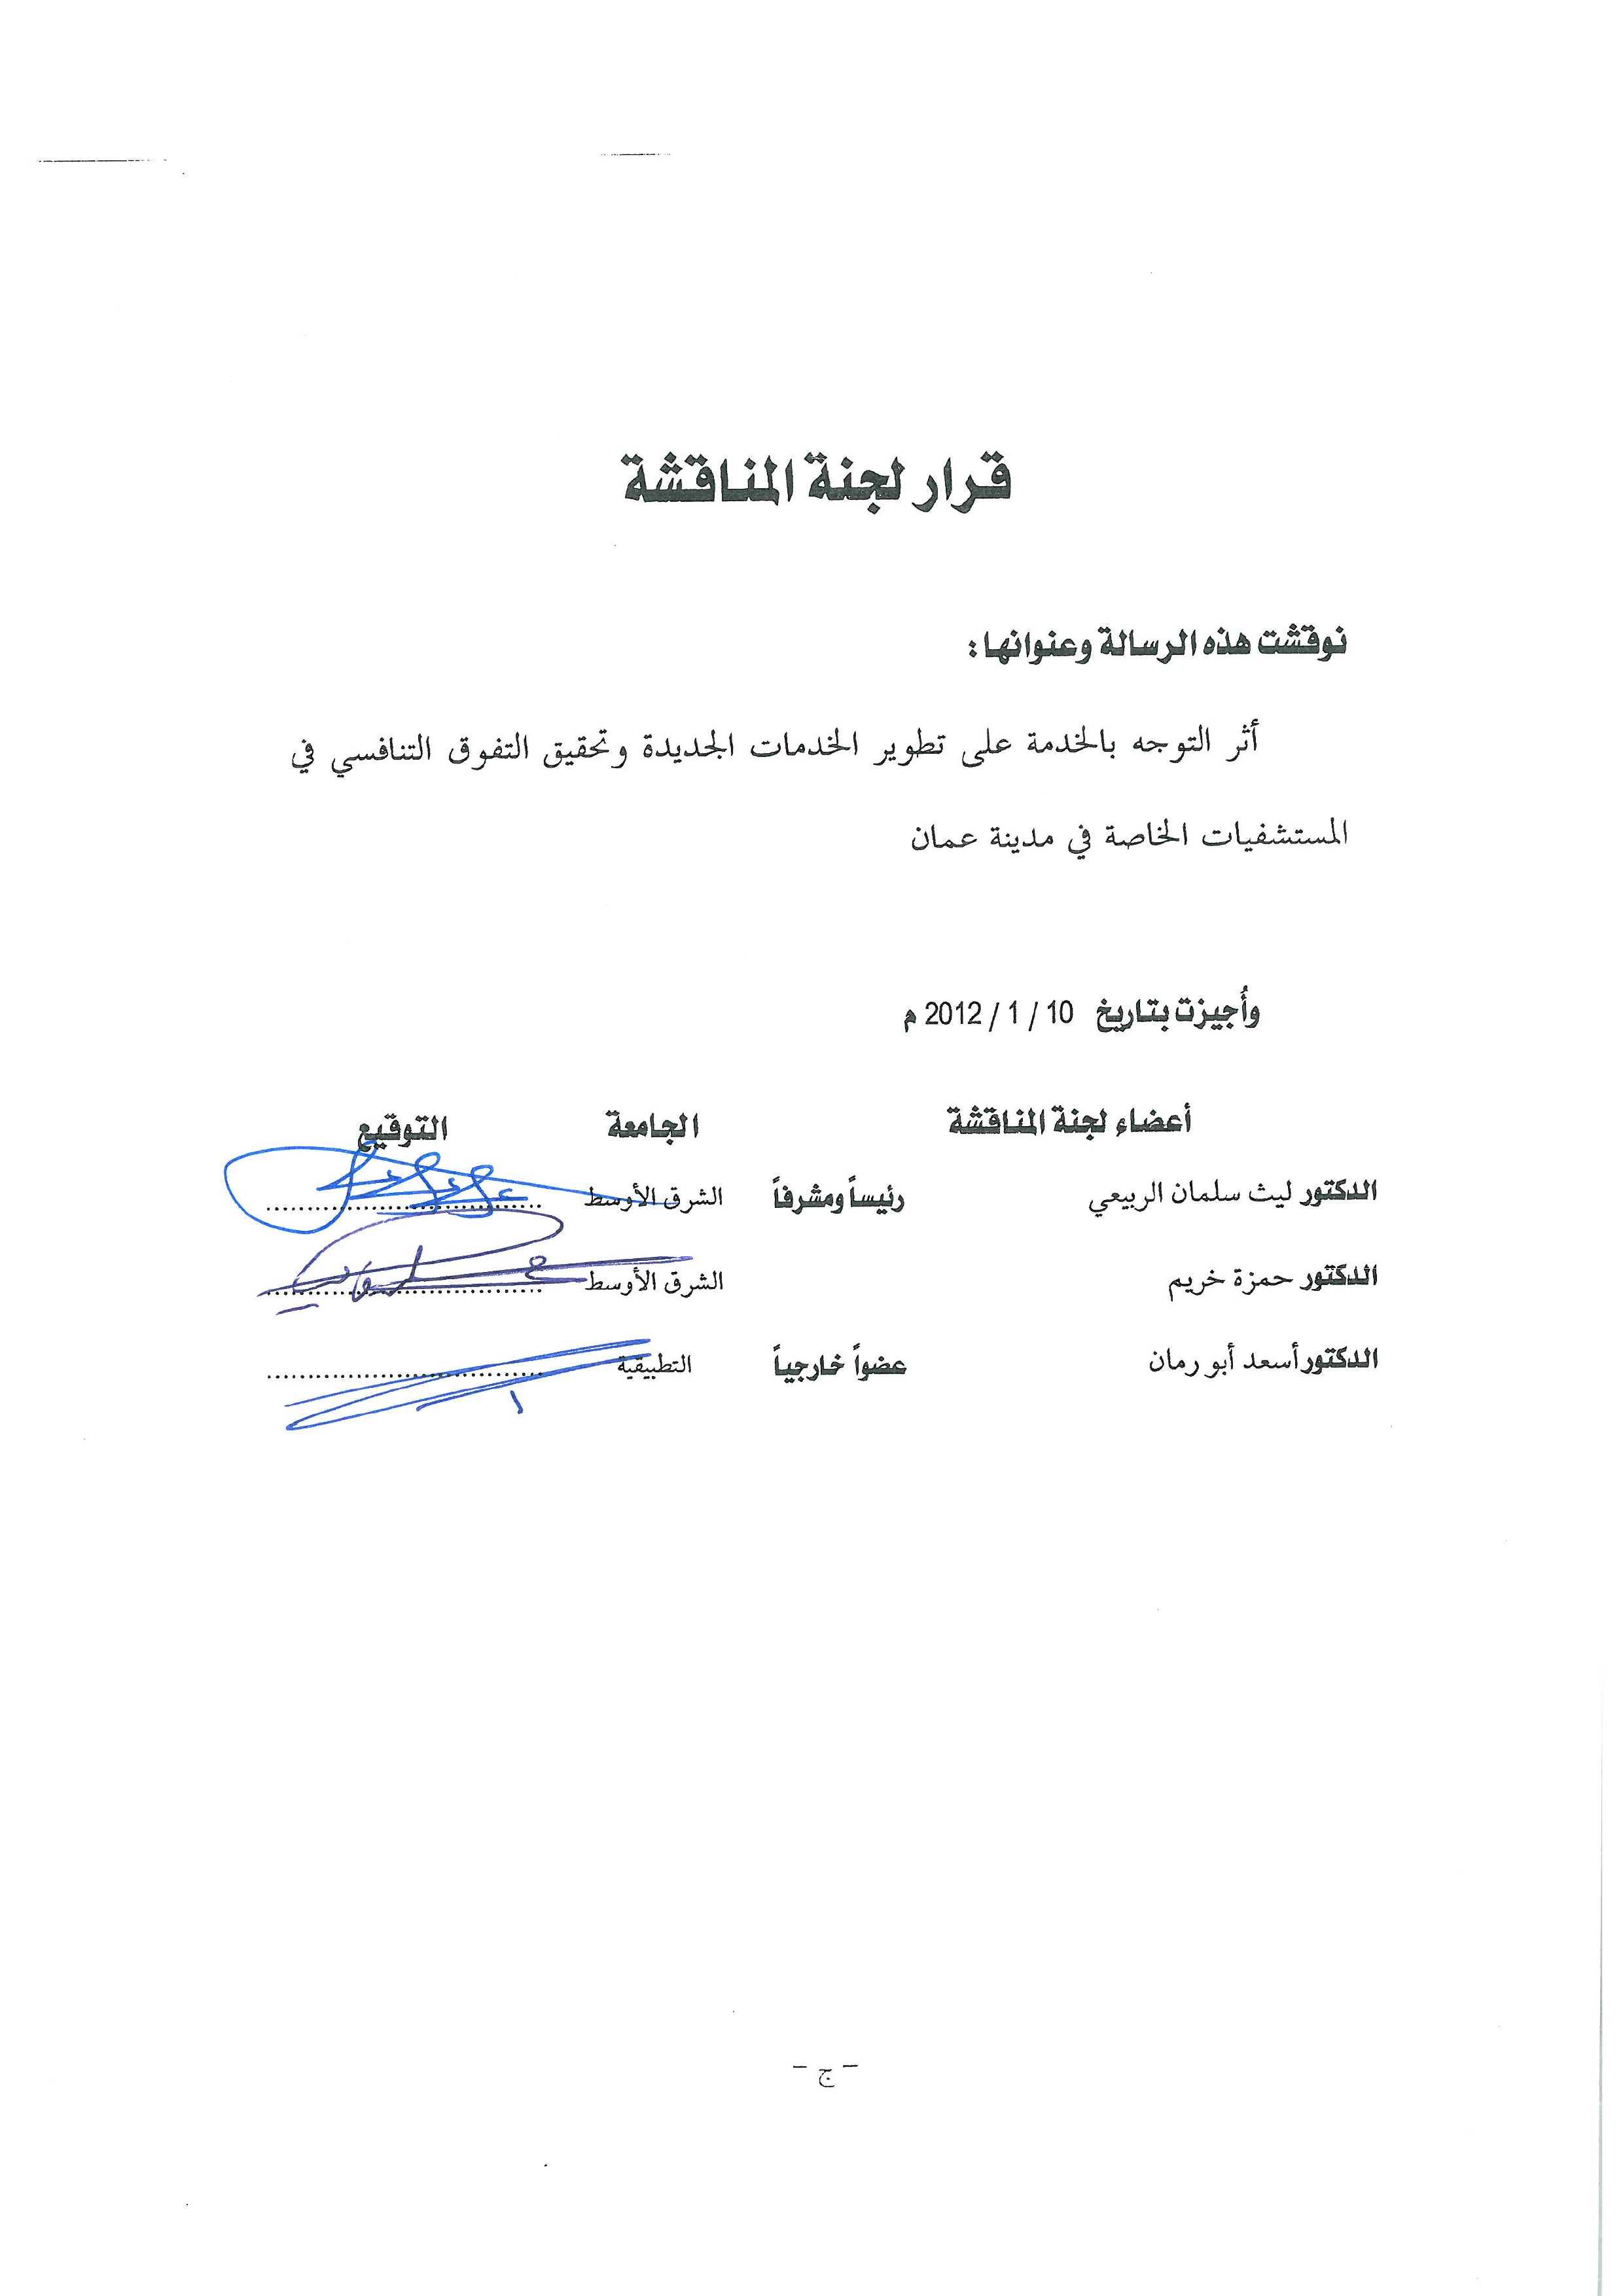 قرار لجنة المناقشة
نوقشت هذه الرسالة وعنوانها :
أثر التوجه بالخدمة على تطوير الخدمات الجديدة وتحقيق التفوق التنافسي في
المستشفيات الخاصة في مدينة عمان
وأُجيزت بتاريخ 10 / 1 / 2012 م
أعضاء لجنة المناقشة الجامعة التوقيع
الدكتور ليث سلمان الربيعي رئيساً ومشرفاً الشرق الأوسط ..............................
الدكتور حمزة خريم الشرق الأوسط ..............................
الدكتور أسعد أبو رمان عضواً خارجياً التطبيقية ..............................
- ج -